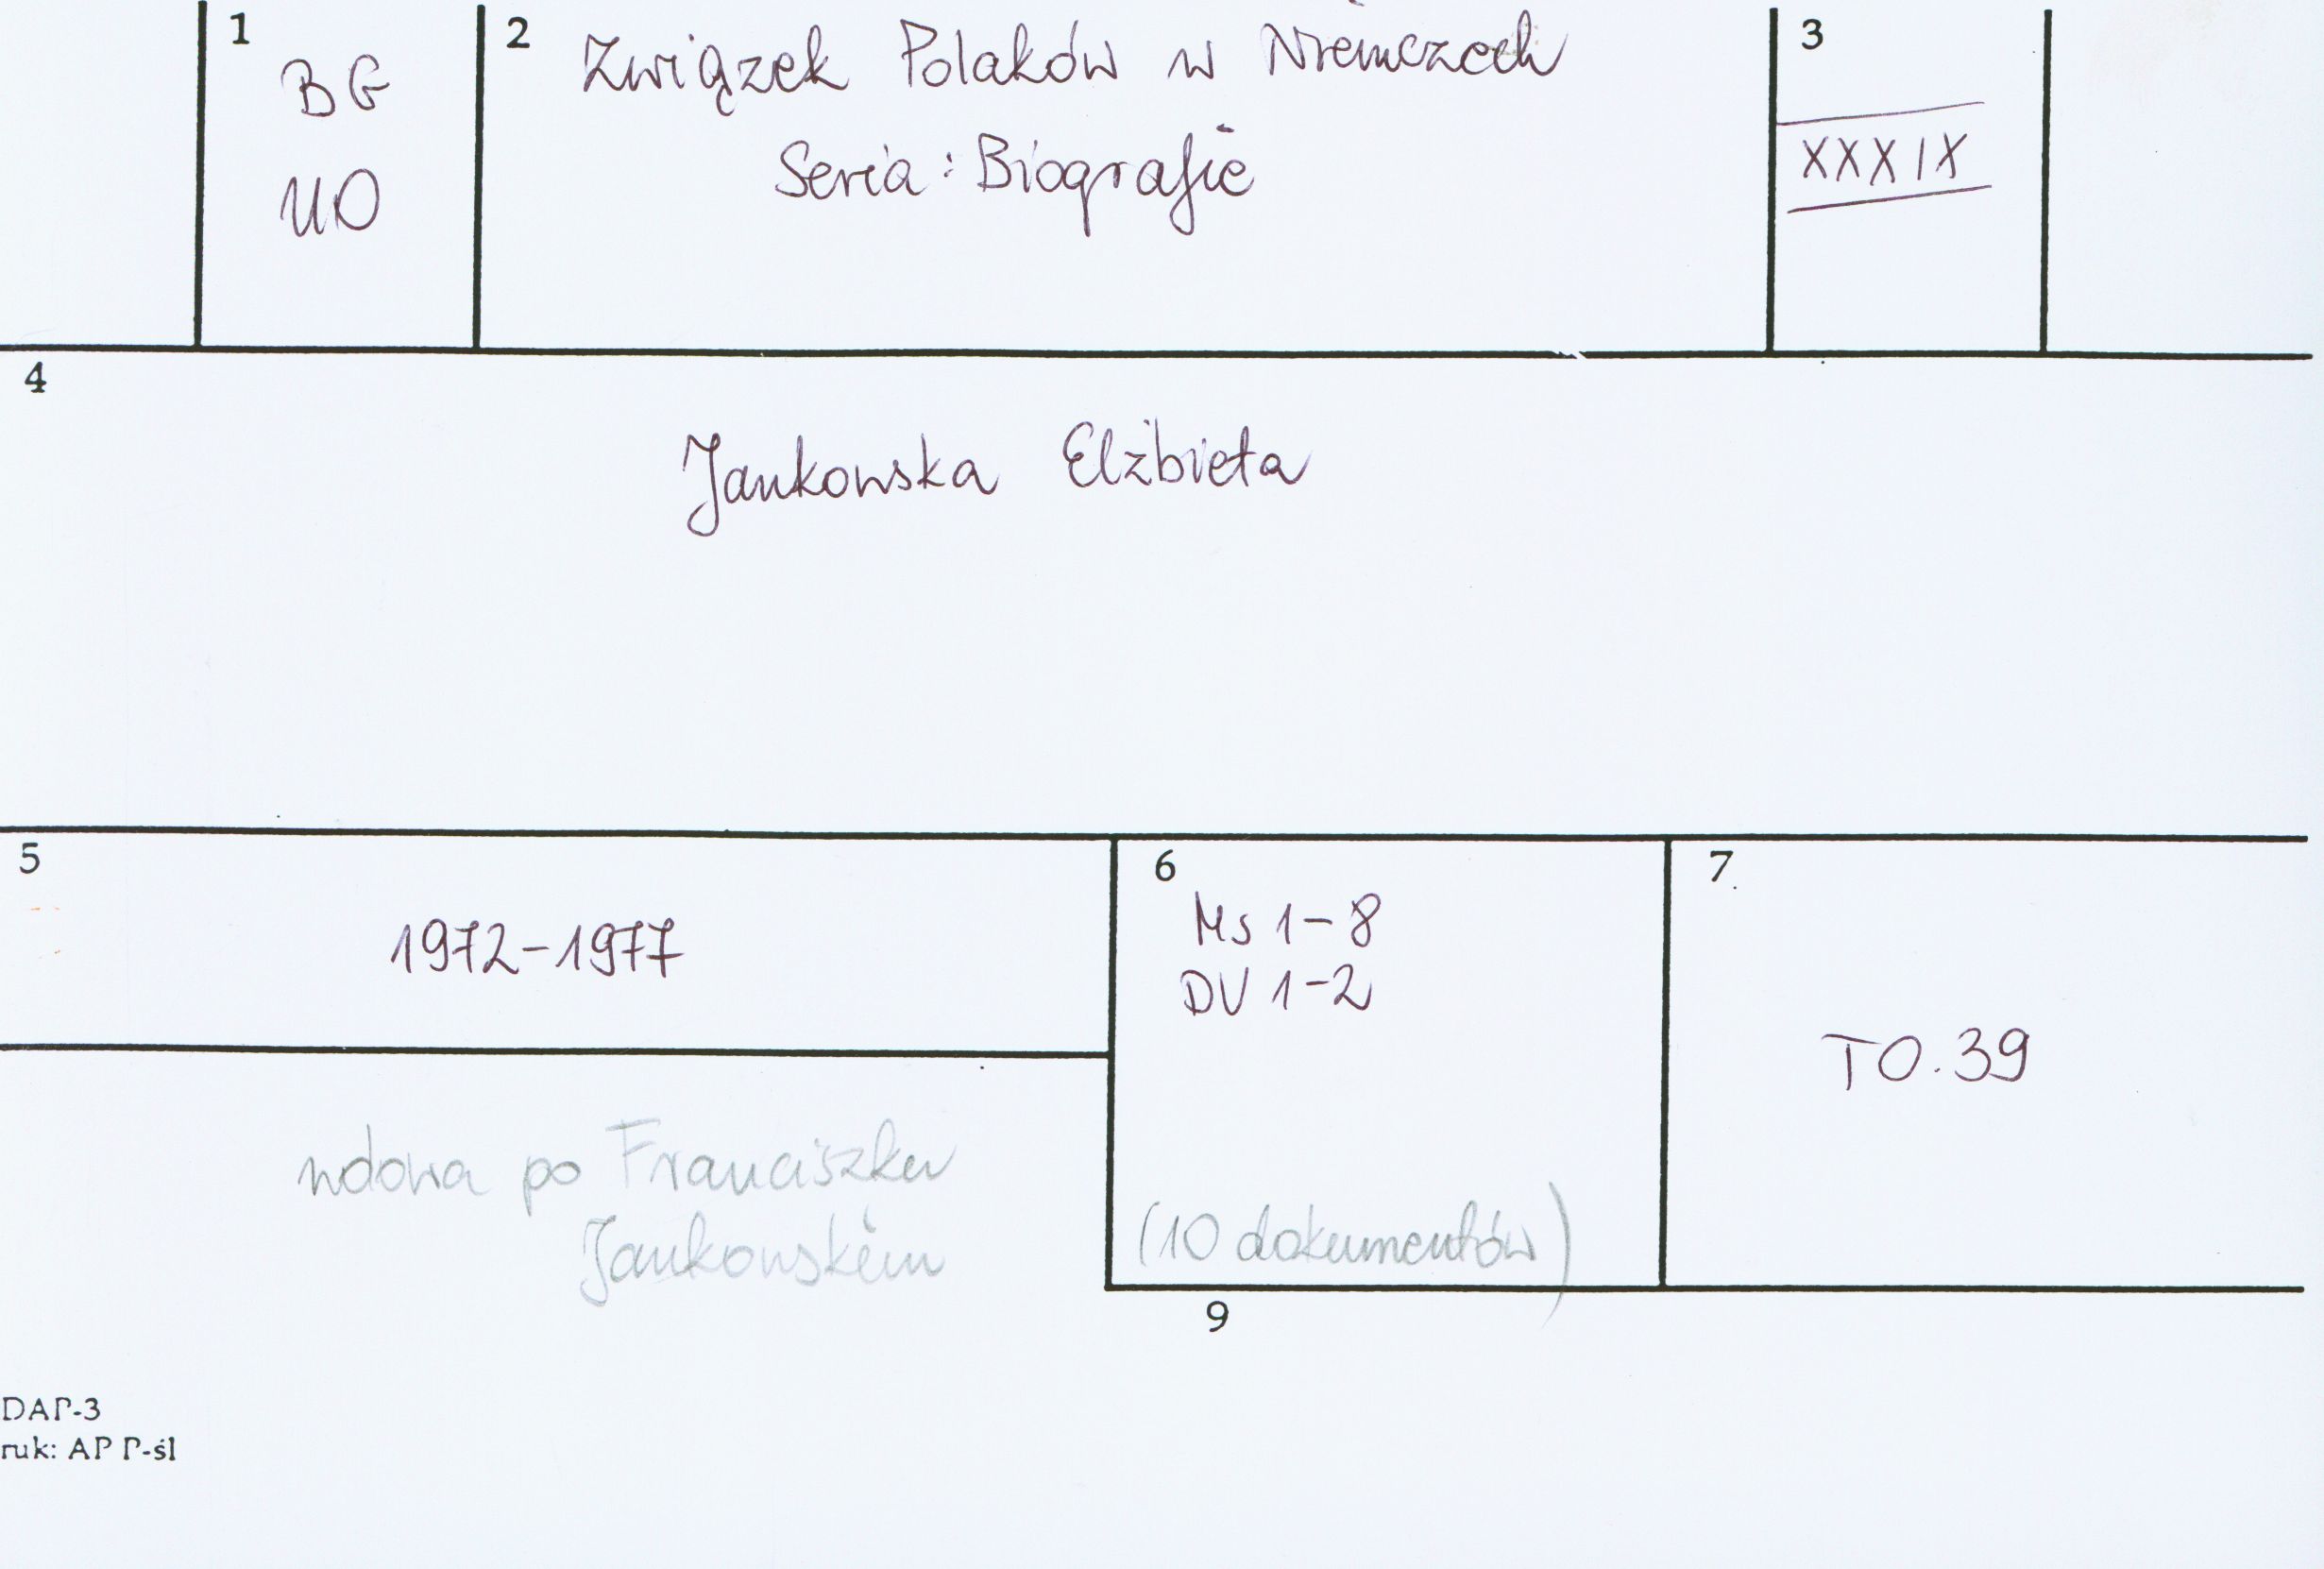 1
BG
UO
2
Związek Polaków w Niemczech
Seria: Biografie
3
XXXIX
4
Jankowska Elżbieta
5
1972-1977
6
Ms 1-8
DV 1-2
(10 dokumentów)
7
TO.39
wdowa po Franciszku
Jankowskim
9
DAP-3
ruk: AP P-śl